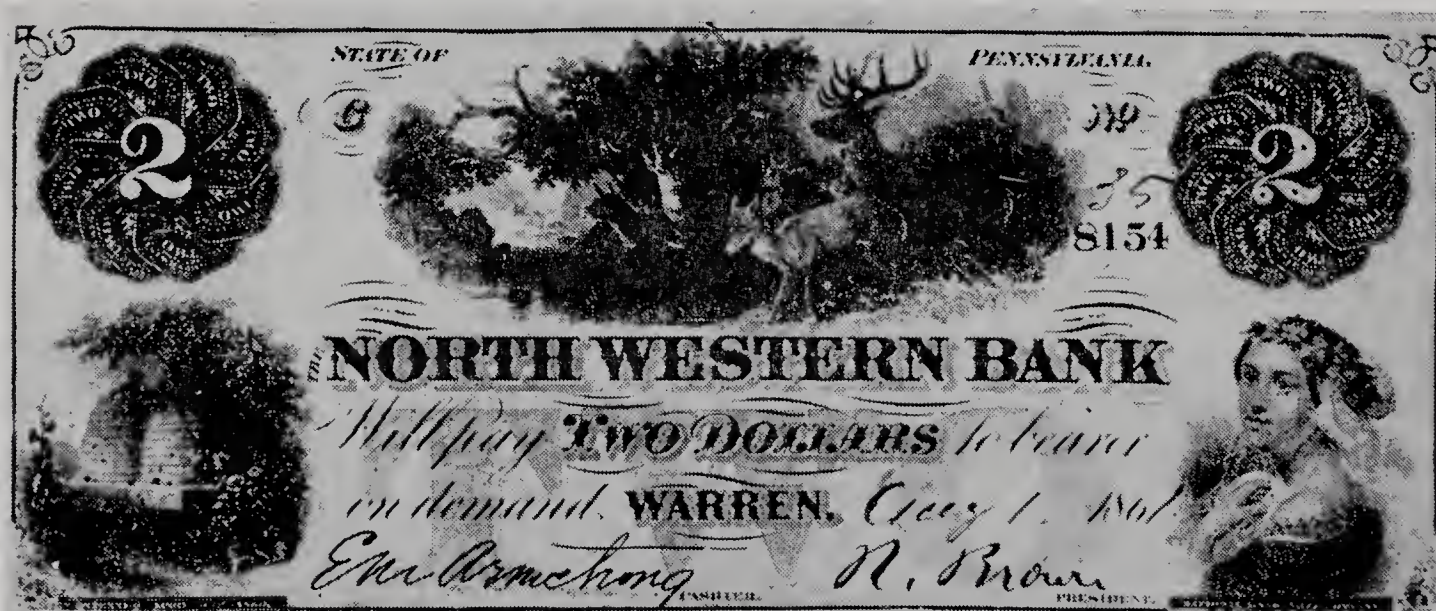 STATE OF PENNSYLVANIA.
2 2
B
8154
THE NORTH WESTERN BANK
Will pay TWO DOLLARS to bearer
on demand. WARREN. Aug 1, 1861
Armstrong N. Brown
CASHIER. PRESIDENT.